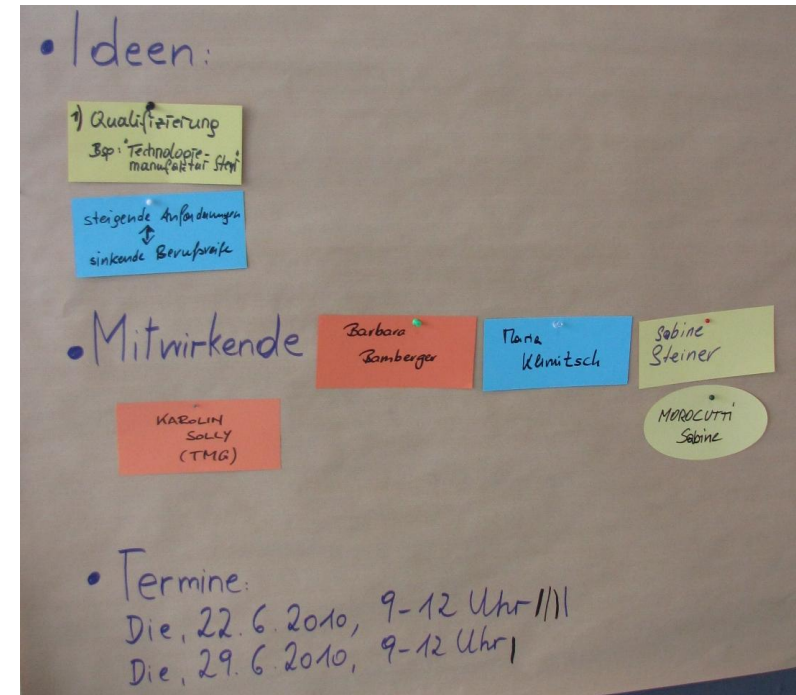 • Ideen:
1) Qualifizierung
Bsp: "Technologie-
manufaktur Steyr"
steigende Anforderungen
↕
sinkende Berufsreife
• Mitwirkende
Barbara
Bamberger
Maria
Klimitsch
Sabine
Steiner
KAROLIN
SOLLY
(TMG)
MOROCUTTI
Sabine
• Termine:
Die, 22.6.2010, 9-12 Uhr |||||
Die, 29.6.2010, 9-12 Uhr |